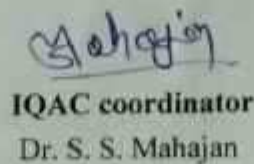 Mahajan
IQAC coordinator
Dr. S. S. Mahajan